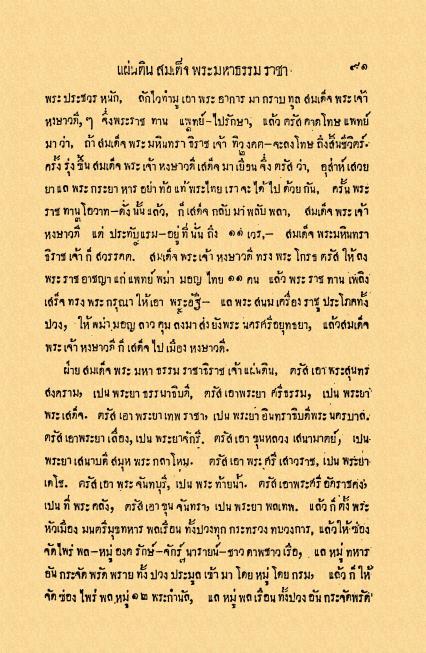 แผ่นดิน สมเด็จ พระมหาธรรม ราชา. ๙๑
พระ ประชวร หนัก, ลักไวทำมู เอา พระ อาการ มา กราบ ทูล สมเด็จ พระ เจ้า
หงษาวดี, ๆ จึ่งพระราช ทาน แพทย์-ไปรักษา, แล้ว ตรัส คาดโทษ แพทย์
มา ว่า, ถ้า สมเด็จ พระ มหินทรา ธิราช เจ้า ทิวงคต-จะลงโทษ ถึงสิ้นชีวิตร์.
ครั้ง รุ่ง ขึ้น สมเด็จ พระ เจ้า หงษาวดี เสด็จ มา เยือน จึ่ง ตรัส ว่า, อุส่าห์ เสวย
ยา แล พระ กระยา หาร อย่า ท้อ แท้ พระไทย เรา จะ ได้ ไป ด้วย กัน, ครั้น พระ
ราช ทาน โอวาท-ดัง นั้น แล้ว, ก็ เสด็จ กลับ มา พลับ พลา, สมเด็จ พระ เจ้า
หงษาวดี แต่ ประทับแรม-อยู่ ที่ นั้น ถึง ๑๑ เวร,- สมเด็จ พระมหินทรา
ธิราช เจ้า ก็ สวรรคต. สมเด็จ พระเจ้า หงษาวดี ทรง พระ โกรธ ตรัส ให้ ลง
พระ ราช อาชญา แก่ แพทย์ พม่า มอญ ไทย ๑๑ คน แล้ว พระ ราช ทาน เพลิง
เสร็จ ทรง พระ กรุณา ให้ เอา พระอัฐิ- แล พระ สนม เครื่อง ราชู ประโภคทั้ง
ปวง, ให้ พม่า มอญ ลาว คุม ลงมา ส่ง ยังพระ นครศรีอยุทธยา, แล้วสมเด็จ
พระ เจ้า หงษาวดี ก็ เสด็จ ไป เมือง หงษาวดี.
ฝ่าย สมเด็จ พระ มหา ธรรม ราชาธิราช เจ้า แผ่นดิน, ตรัส เอา พระสุนทร
สงคราม, เปน พระยา ธรรมาธิบดี, ตรัส เอา พระยา ศรีธรรม, เปน พระยา
พระ เสด็จ. ตรัส เอา พระยา เทพ ราชา, เปน พระยา อินทราธิบดีพระ นครบาล.
ตรัส เอาพระยา เลื่อง, เปน พระยาจักรี. ตรัส เอา ขุนหลวง เสนามาตย์, เปน-
พระยา เสนาบดี สมุห พระ กลาโหม. ตรัส เอา พระ ศรี เสาวราช, เปน พระยา-
เดโช. ตรัส เอา พระ จันทบุรี, เปน พระ ท้ายน้ำ. ตรัส เอาพระศรี อัคราชคง,
เปน ที่ พระ คลัง, ตรัส เอา ขุน จันทรา, เปน พระยา พลเทพ. แล้ว ก็ ตั้ง พระ
หัวเมือง มนตรีมุขทหาร พลเรือน ทั้งปวงทุก กระทรวง ทบวงการ, แล้วให้ ซ่อง
จัดไพร่ พล-หมู่ องค รักษ์-จักรนารายน์-ชาว ดาพชาว เรือ, แล หมู่ ทหาร
อัน กระจัด พรัด พราย ทั้ง ปวง ประมูล เข้า มา โดย หมู่ โดย กรม, แล้ว ก็ ให้
จัด ซ่อง ไพร่ พล หมู่ ๑๒ พระกำนัล, แล หมู่ พล เรือน ทั้งปวง อัน กระจัดพรัด